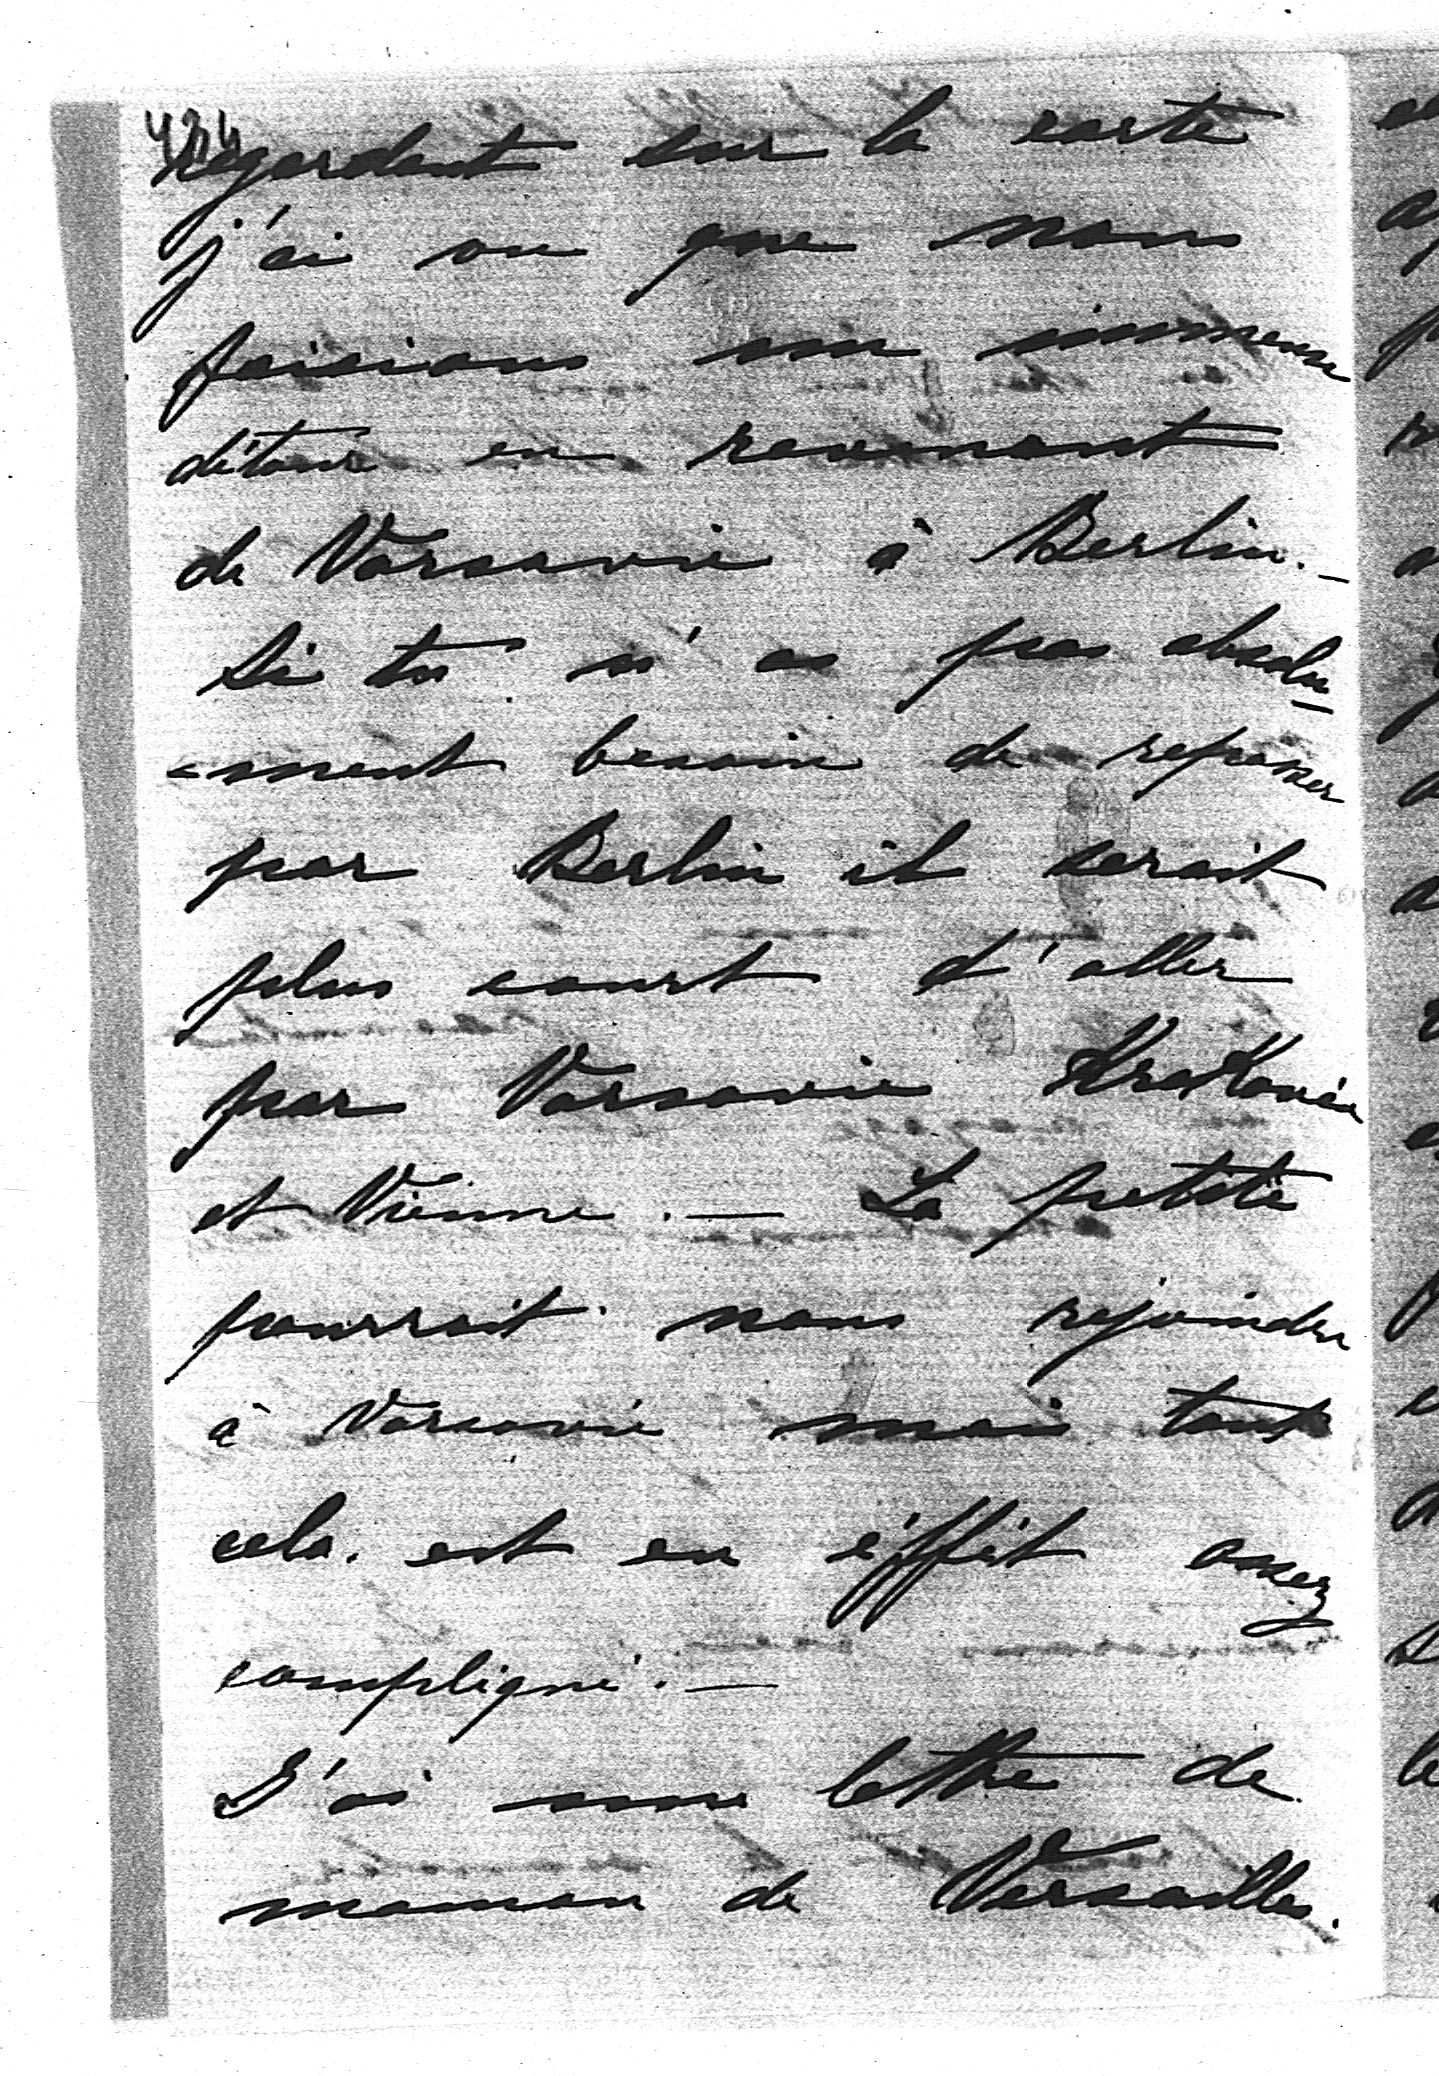 434
regardant sur la carte
j'ai vu que nous
faisions un immense
détour en revenant
de Varsovie à Berlin. _
Si tu n'as pas absolu
-ment besoin de repasser
par Berlin il serait
plus court d'aller
par Varsovie Krakovie
et Vienne. — La petite
pourrait nous rejoindre
à Varsovie mais tout
cela est en éffèt assez
compliqué. —
J'ai une lettre de
maman de Versailles.